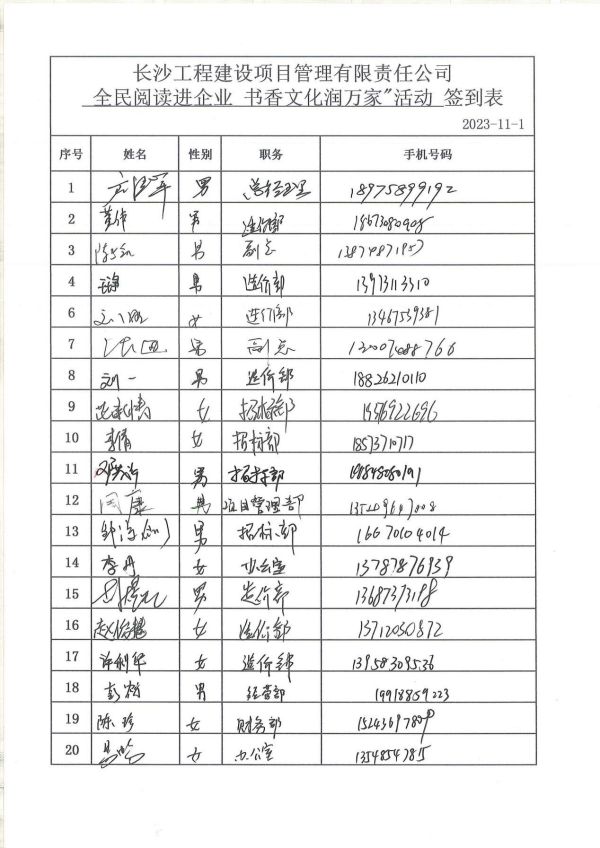 长沙工程建设项目管理有限责任公司
全民阅读进企业 书香文化润万家"活动 签到表
2023-11-1
序号 姓名 性别 职务 手机号码
1 男 总经理 18975899192
2 黄伟 男 造价部 18673080908
3 男 副总
4 男 造价部 13973113310
6 女 造价部 13467539381
7 男 副总
8 刘一 男 造价部 18826210110
9 女 招标部
10 李倩 女 招标部
11 男 招标部
12 周康 男 项目管理部
13 男 招标部 16670104014
14 李丹 女 办公室 13787876939
15 男 造价部 13687373188
16 女 造价部 13712050872
17 许利华 女 造价部 13958309536
18 男 经营部 19918859223
19 陈珍 女 财务部
20 女 办公室 13548547815